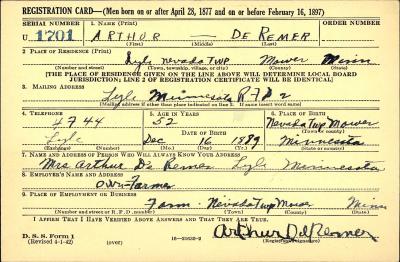 REGISTRATION CARD—(Men born on or after April 28, 1877 and on or before February 16, 1897)
SERIAL NUMBER 1. NAME (Print) ORDER NUMBER
U 1701 ARTHUR — DE REMER
(First) (Middle) (Last)
2. PLACE OF RESIDENCE (Print)
Lyle Nevada Twp Mower Minn
(Number and street) (Town, township, village, or city) (County) (State)
[THE PLACE OF RESIDENCE GIVEN ON THE LINE ABOVE WILL DETERMINE LOCAL BOARD
JURISDICTION; LINE 2 OF REGISTRATION CERTIFICATE WILL BE IDENTICAL]
3. MAILING ADDRESS
Lyle Minnesota RFD 2
[Mailing address if other than place indicated on line 2. If same insert word same]
4. TELEPHONE 5. AGE IN YEARS 6. PLACE OF BIRTH
4744 52 Nevada Twp Mower
DATE OF BIRTH (Town or county)
Lyle Dec 16 1889 Minnesota
(Exchange) (Number) (Mo.) (Day) (Yr.) (State or country)
7. NAME AND ADDRESS OF PERSON WHO WILL ALWAYS KNOW YOUR ADDRESS
Mrs Arthur De Remer Lyle Minnesota
8. EMPLOYER'S NAME AND ADDRESS
Own-Farmer
9. PLACE OF EMPLOYMENT OR BUSINESS
Farm - Nevada Twp Mower Minn
(Number and street or R. F. D. number) (Town) (County) (State)
I AFFIRM THAT I HAVE VERIFIED ABOVE ANSWERS AND THAT THEY ARE TRUE.
D. S. S. Form 1
(Revised 4-1-42) (over) Arthur DeRemer
(Registrant's signature)